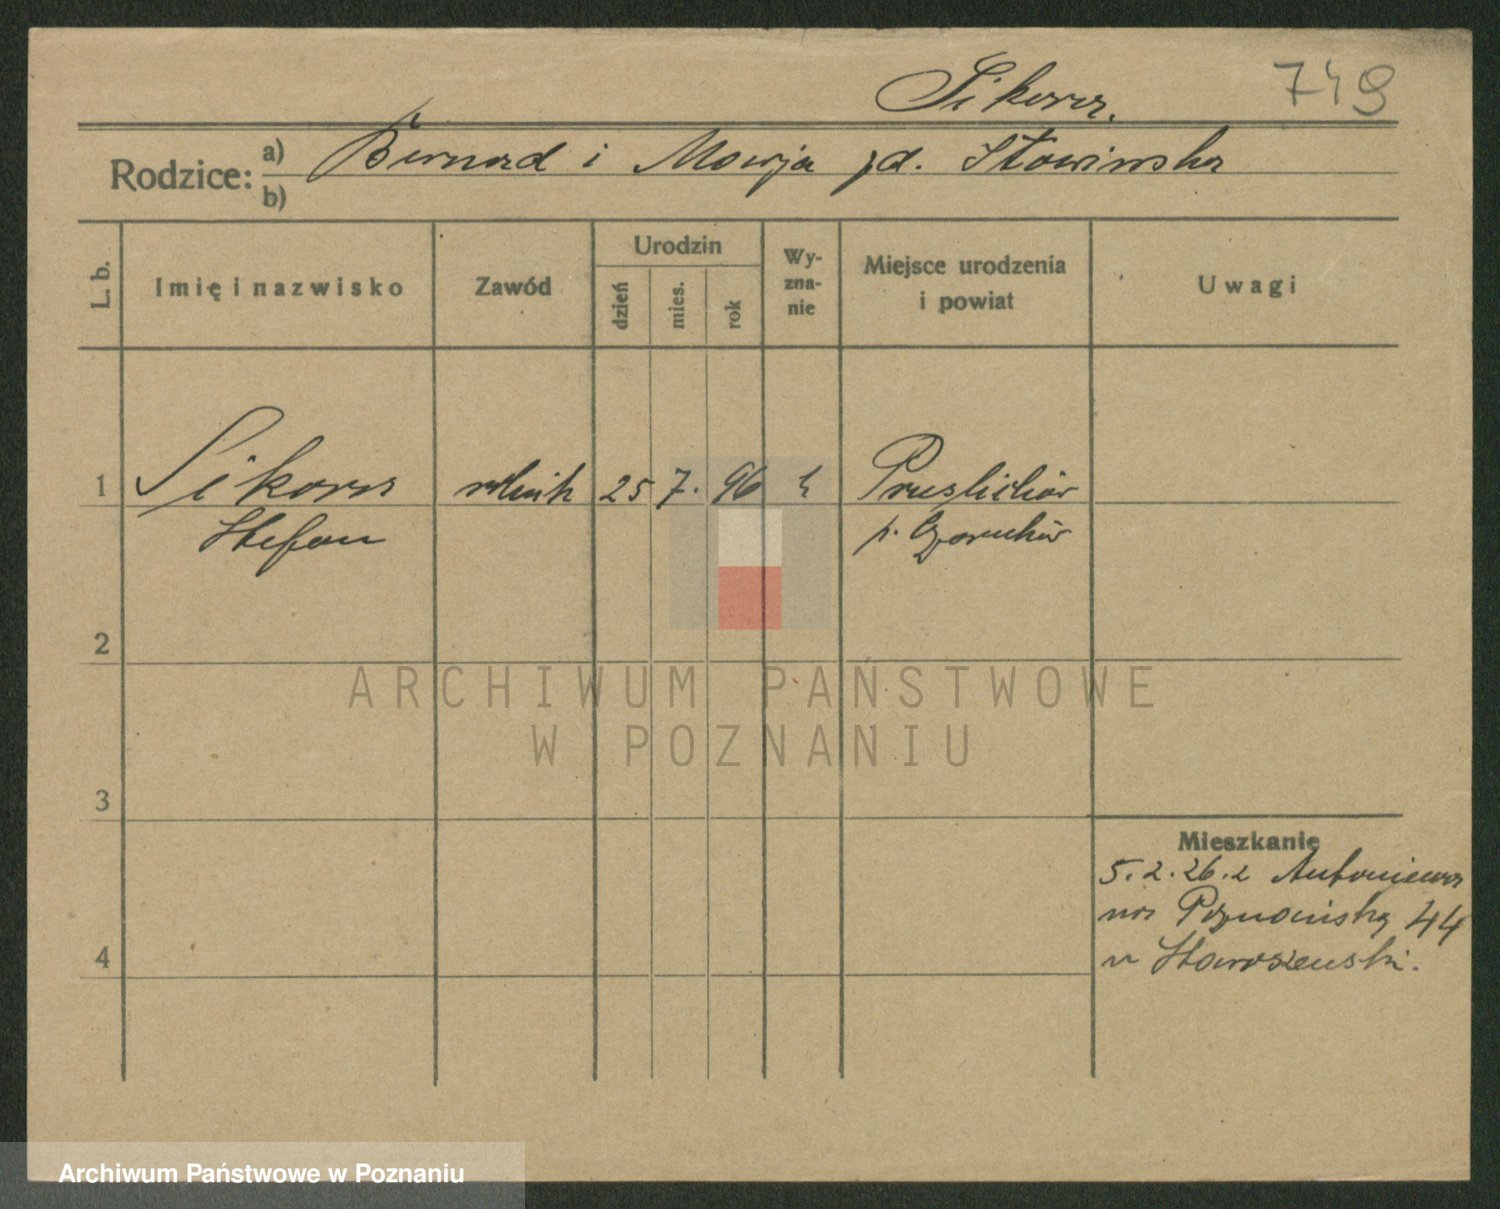 Sikora.
749
Rodzice: a) Bernard i Marja zd. Słowińska
b)
L. b.
Imię i nazwisko
Zawód
Urodzin
dzień
mies.
rok
Wy-
zna-
nie
Miejsce urodzenia
i powiat
Uwagi
1 Sikora rolnik 25 7. 96 k
Stefan p. Czarnków
2
3
4
Mieszkanie
5.2.26. z
Poznańska 44
u
ARCHIWUM PAŃSTWOWE
W POZNANIU
Archiwum Państwowe w Poznaniu